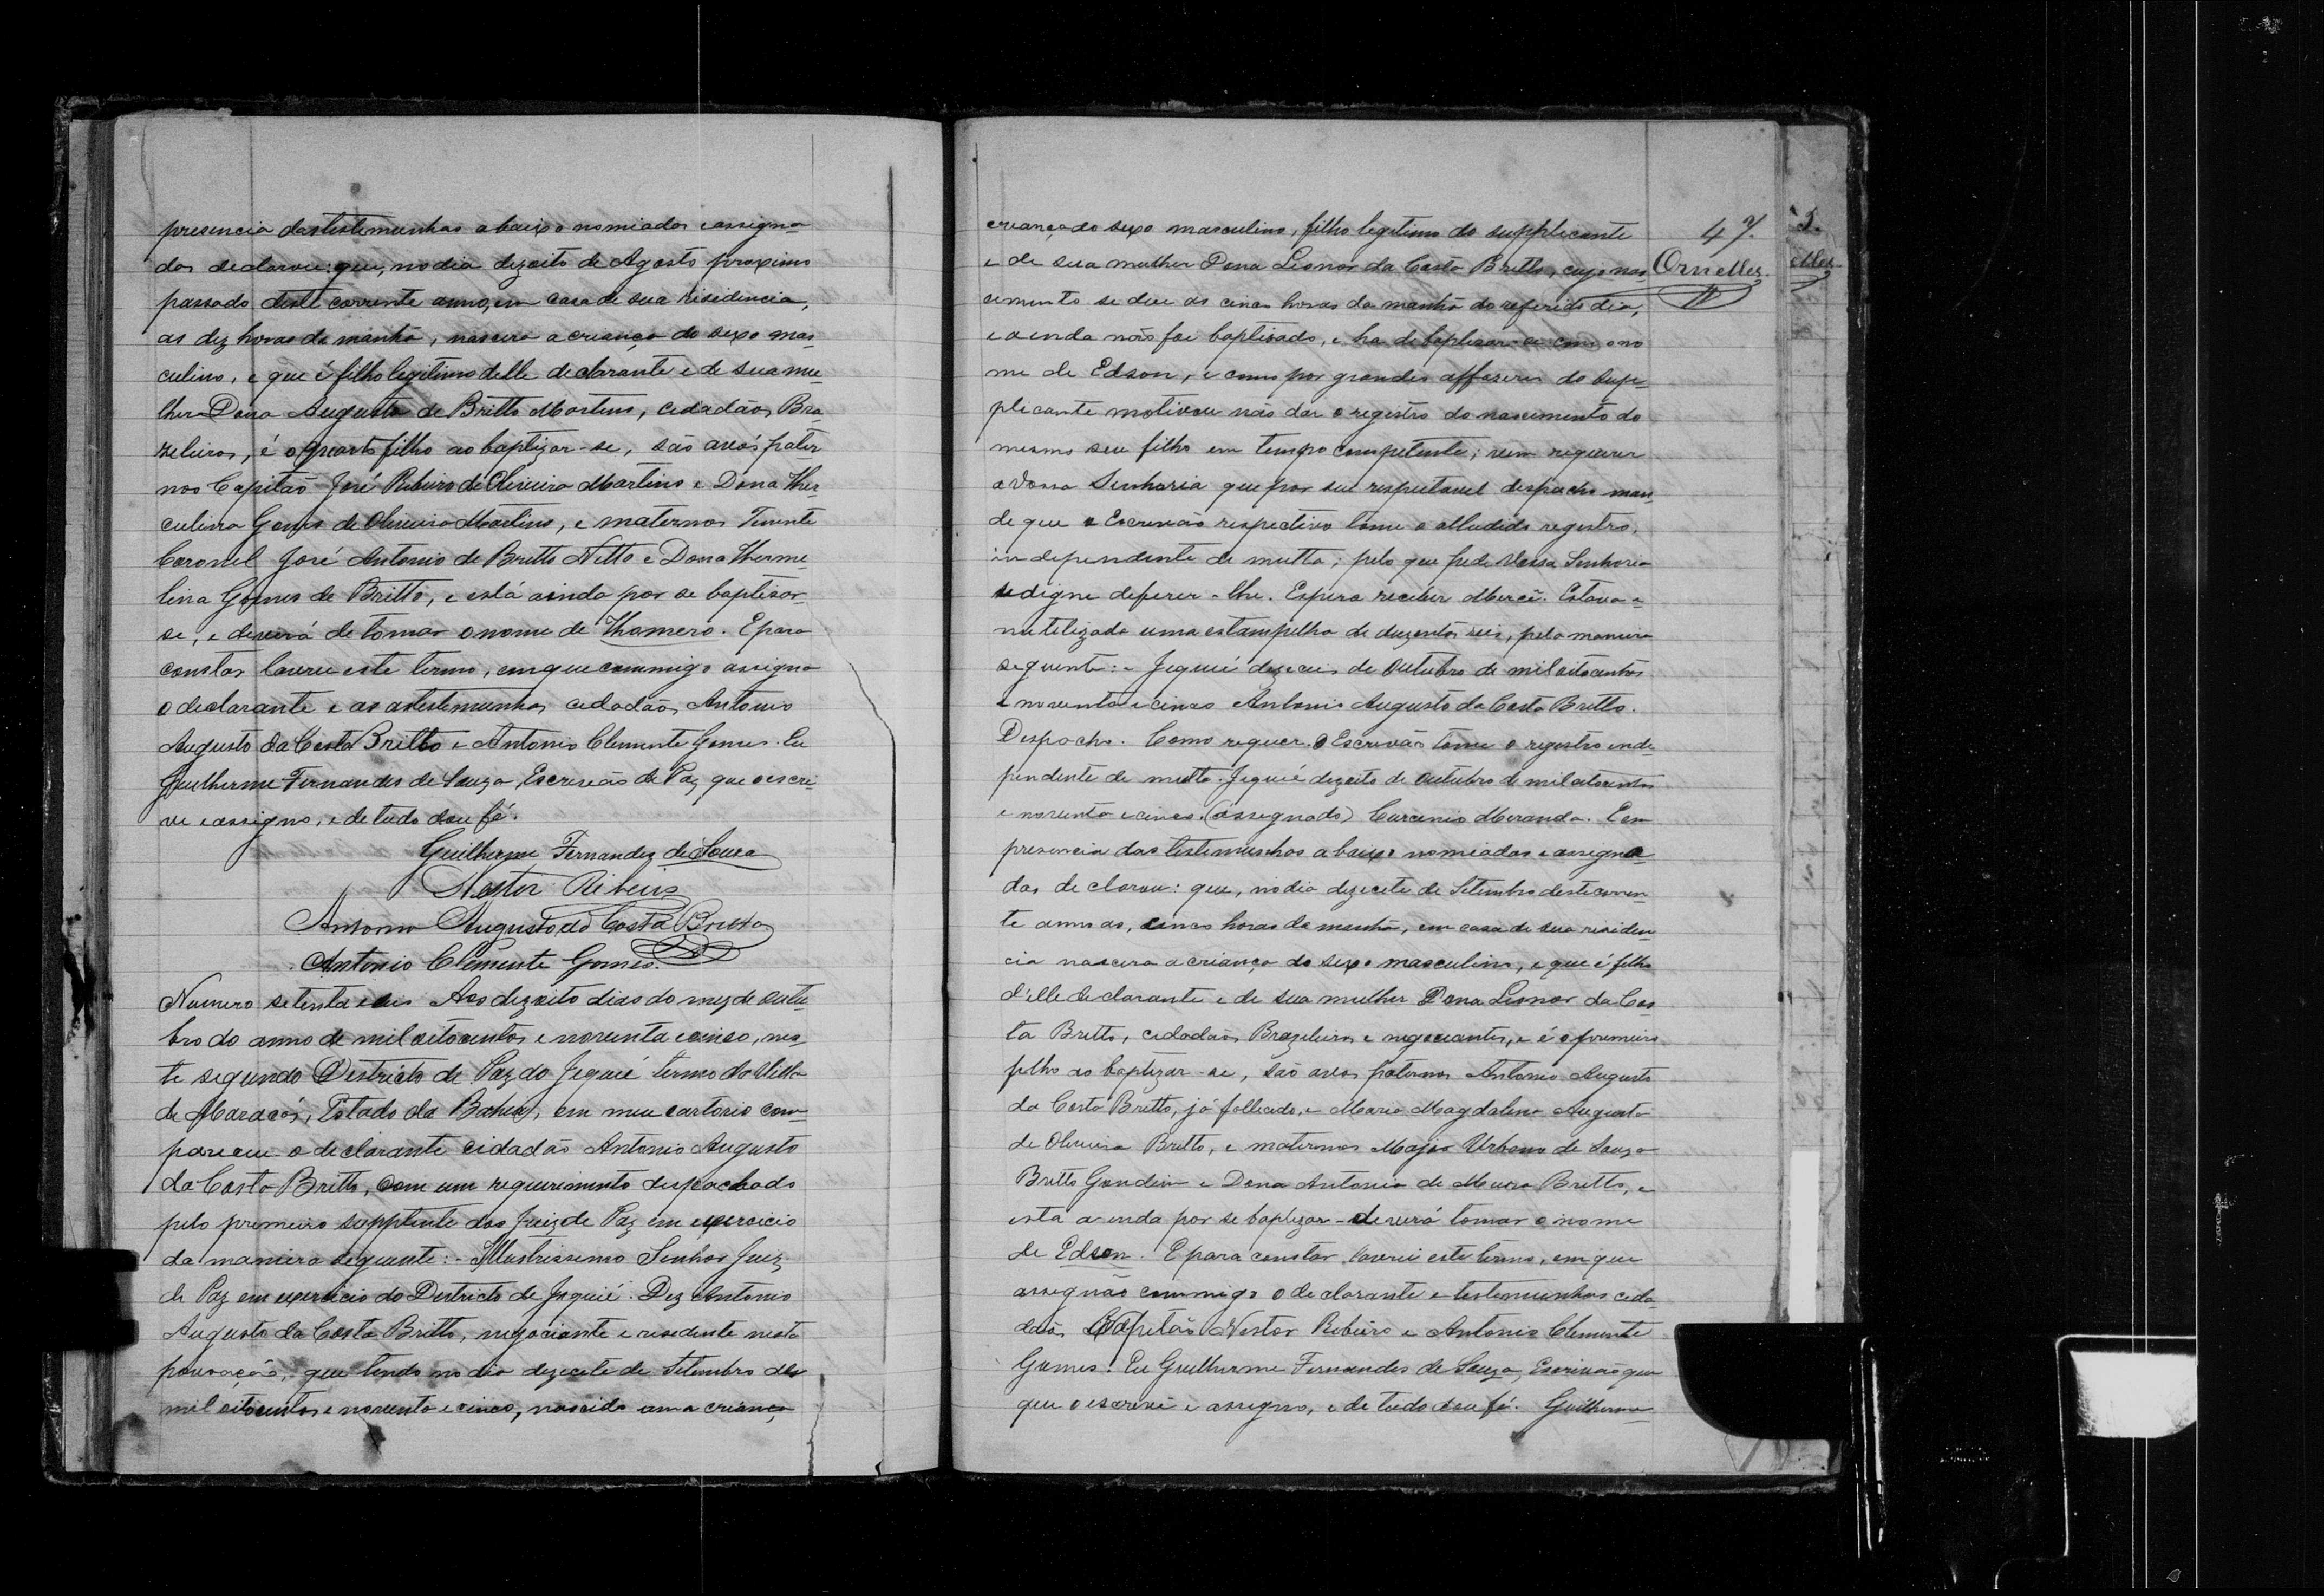 presencia das testemunhas abaixo nomiadas e assigna-
das declarou: que, no dia dezoito de Agosto proximo
passado deste corrente anno, em casa de sua residencia,
as dez horas da manhã, nascera a criança do sexo mas-
culino, e que é filho legitimo delle declarante e de sua mu-
lher Dona Augusta de Britto Martins, cidadãos Bra-
zeleiros, é o quarto filho ao baptizar-se, são avós pater-
nos Capitão José Ribeiro de Oliveira Martins e Dona Her-
culina Gomes de Oliveira Martins, e maternos Tenente
Coronel José Antonio de Britto Netto e Dona Herme-
lina Gomes de Britto, e está ainda por se baptisar-
se, e deverá de tomar o nome de Homero. E para
constar lavrei este termo, em que commigo assigna
o declarante e as as testemunhas cidadãos Antonio
Augusto da Costa Britto e Antonio Clemente Gomes. Eu
Guilherme Fernandes de Souza, Escrivão de Paz que o escri-
vi e assigno, e de tudo dou fé.
Guilherme Fernandez de Souza
Nestor Ribeiro
Antonio Augusto da Costa Britto
Antonio Clemente Gomes.
Numero setenta e seis Aos dezoito dias do mez de Outu-
bro do anno de mil oitocentos e noventa e cinco, nes-
te segundo Districto de Paz do Jequié termo da Villa
de Maracás, Estado da Bahia, em meu cartorio com-
pareceu o declarante cidadão Antonio Augusto
da Costa Britto, com um requerimento despachado
pelo premeiro supplente dos Juiz de Paz em exercicio
da maneira seguante:- Illustrissimo Senhor Juiz
de Paz em exercicio do Destricto de Jequié. Diz Antonio
Augusto da Costa Britto, negociante e residente nesta
povoação, que tendo no dia dezecete de Setembro de
mil oitocentos e noventa e cinco, nascido uma criança
criança do sexo masculino, filho legitimo do supplecante
e de sua mulher Dona Leonor da Costa Britto, cujo nas-
cimento se deu as cinco horas da manhã do referido dia,
e ainda não foi baptisado, e ha de baptizar-se com o no-
me de Edson, e como por grandes affazeres do sup-
plicante motivou não dar o registro do nascimento do
mesmo seu filho em tempo competente; vem requerer
a Vossa Senhoria que por seu respeitavel despacho man-
de que o Escrivão respectivo tome o alludido registro,
independente de multa; pelo que pede Vossa Senhoria
se digne deferer-lhe. Espera receber Mercê. Estava i-
nutelizada uma estampelha de duzentos reis, pela maneira
seguente:- Jequié dezeceis de Outubro de mil oitocentos
e noventa e cinco Antonio Augusto da Costa Britto.
Despacho. Como requer. O Escrivão tome o registro inde-
pendente de multa. Jequié dezoito de Outubro de mil oitocentos
e noventa e cinco. (assegnado) Miranda. E em
presencia das testemunhas abaixo nomiadas e assigna-
das declarou: que, no dia dezecete de Setembro deste corren-
te anno as, cinco horas da manhã, em casa de sua residen-
cia nascera a criança do sexo masculino, e que é filho
d'elle declarante e de sua mulher Dona Leonor da Cos-
ta Britto, cidadãos Brazileiros e negociantes, e é o premeiro
filho ao baptizar-se, são avos paternos Antonio Augusto
da Costa Britto, já fallecido, e Maria Magdalena Augusta
de Oliveira Britto, e maternos Major Urbano de Souza
Britto Gondim e Dona Antonia de Moura Britto, e
está ainda por se baptizar-deverá tomar o nome
de Edson. E para constar lavrei este termo, em que
assegnão commigo o declarante e testemunhas cida-
dãos Capitão Nestor Ribeiro e Antonio Clemente
Gomes. Eu Guilherme Fernandes de Souza, Escrivão que
que o escrevi e assigno, e de tudo dou fé. Guilherme
47.
Ornellez.